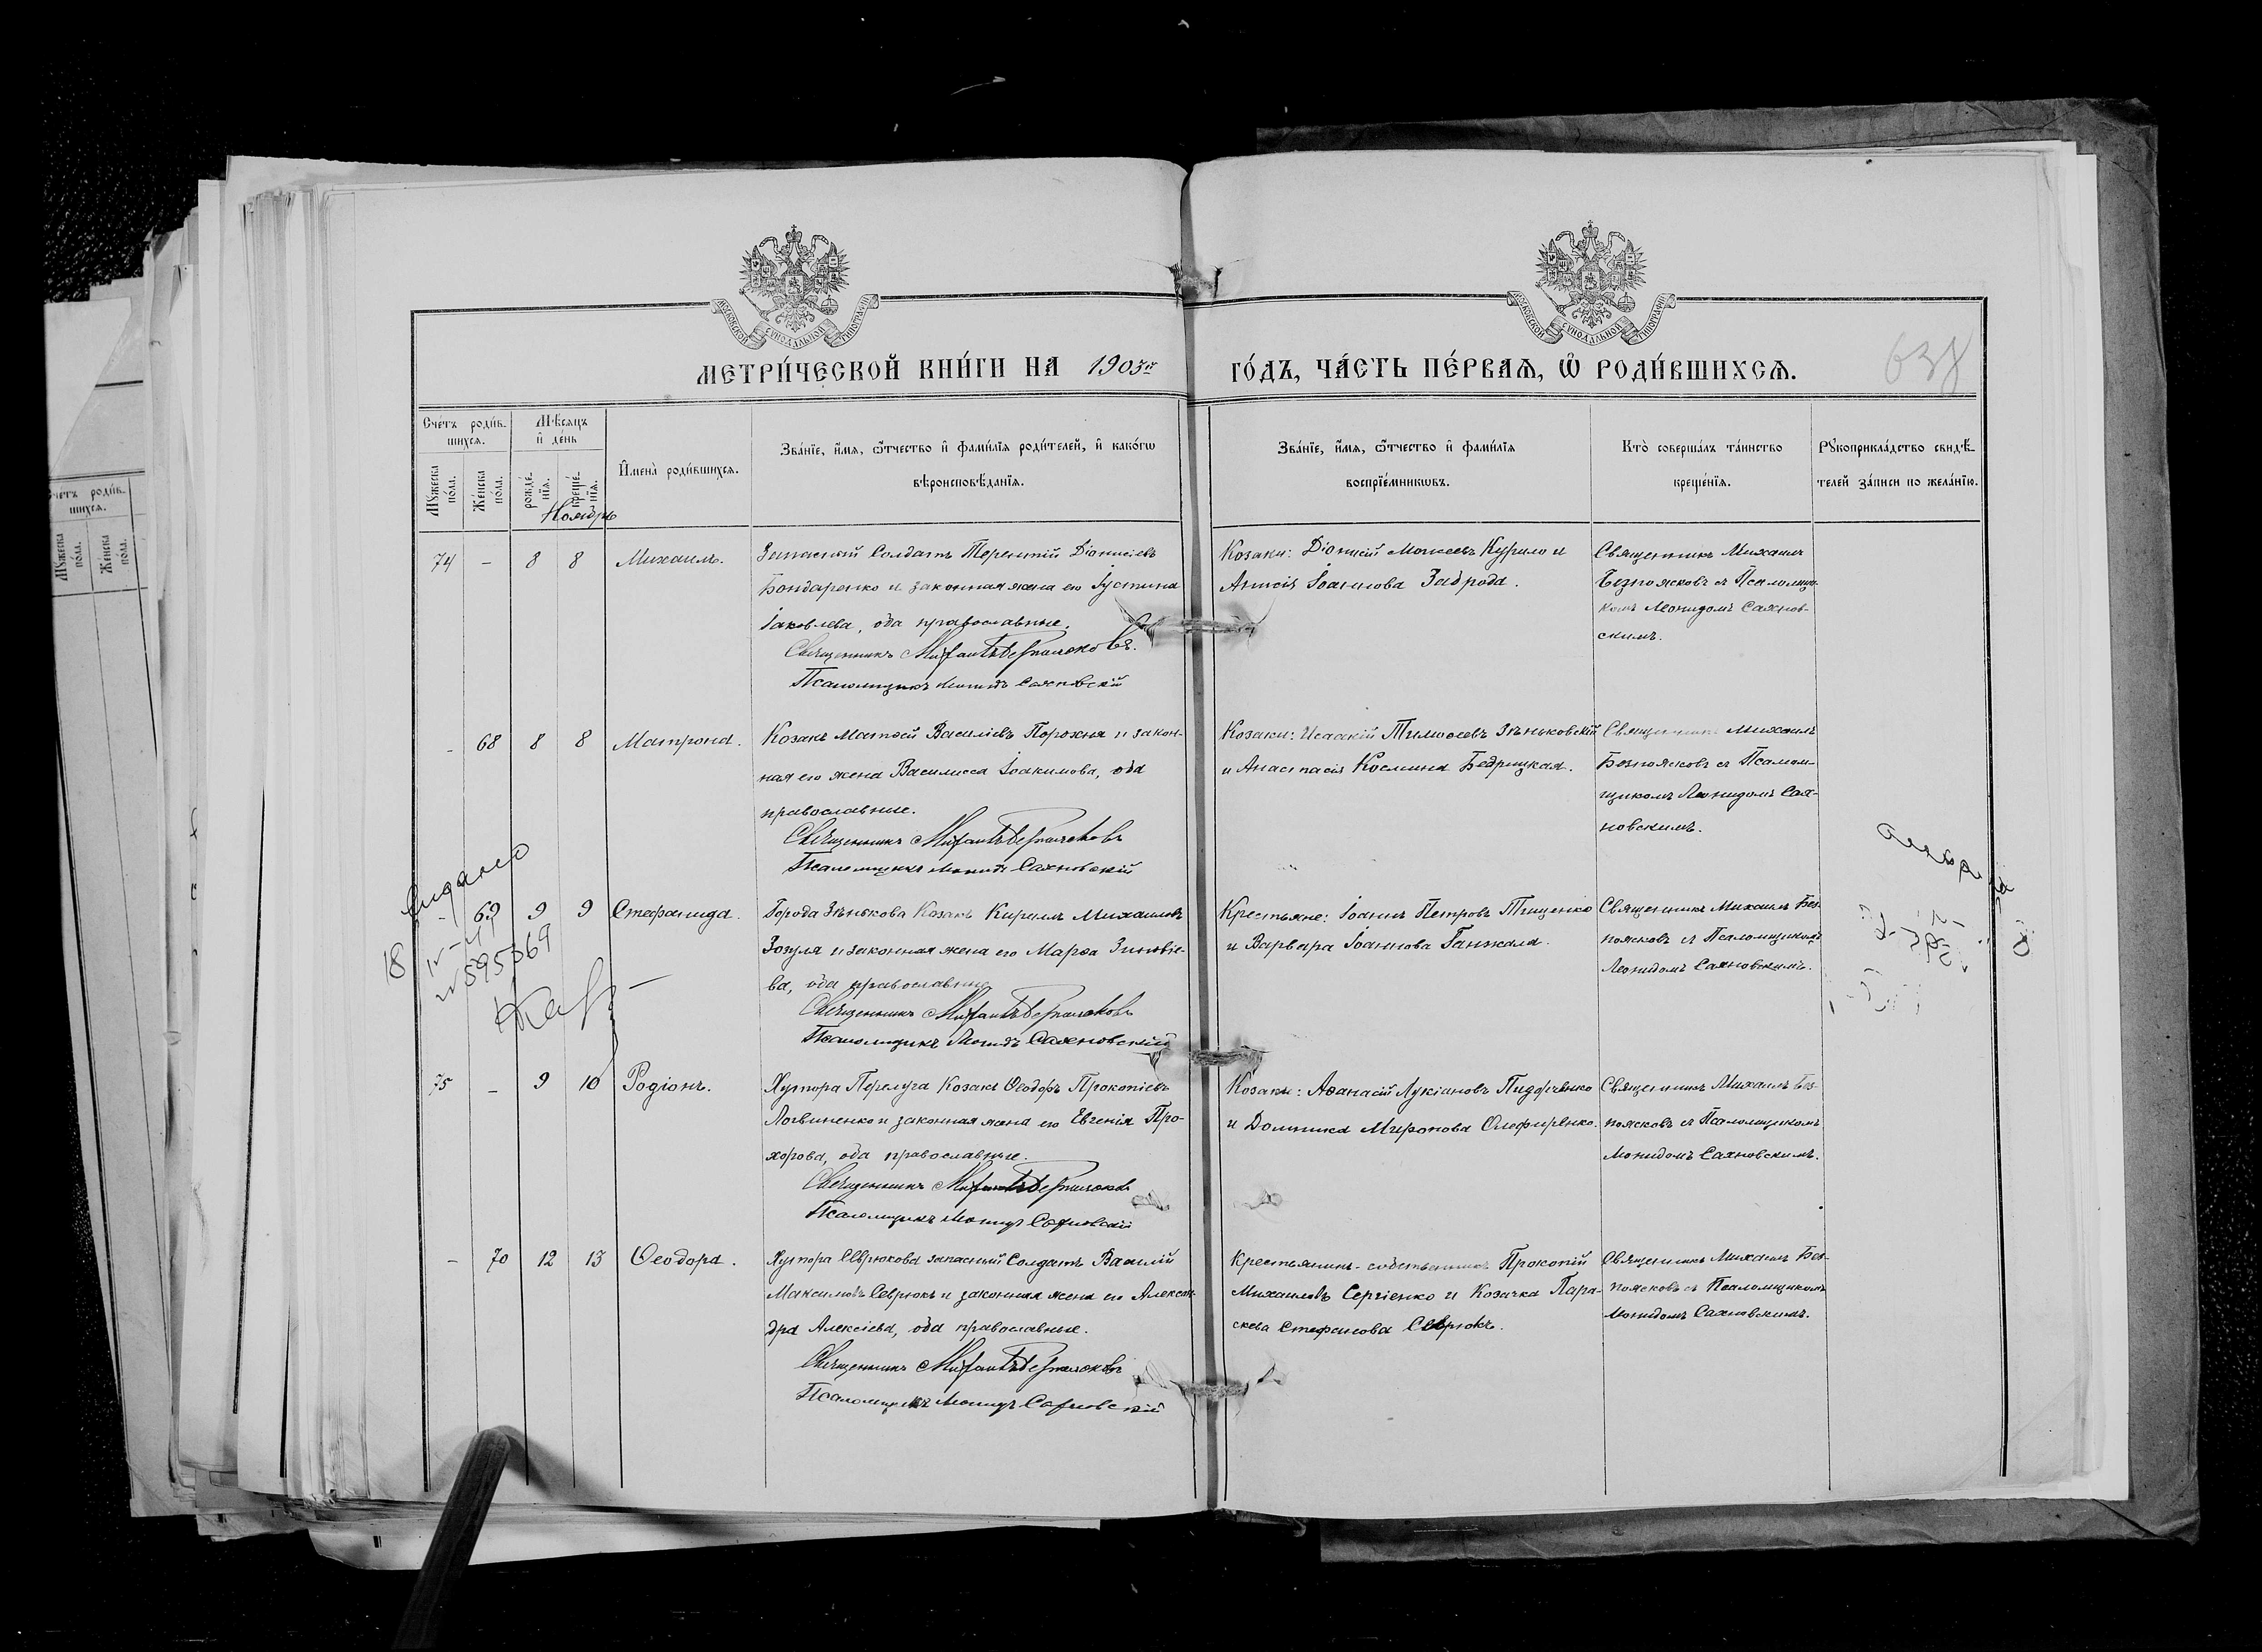 МОСКОВСКОЙ СѴНОДАЛЬНОЙ ТИПОГРАФІИ
МОСКОВСКОЙ СѴНОДАЛЬНОЙ ТИПОГРАФІИ
МЕТРИ́ЧЕСКОЙ КНИ́ГИ НА 1903й ГО́ДЪ, ЧА́СТЬ ПЕ́РВАѦ, Ѡ҆ РОДИ́ВШИХСѦ.
Сче́тъ роди́в-
шихсѧ.
Мꙋ́жеска по́ла.
Же́нска по́ла.
Мѣ́сѧцъ
и҆ де́нь
рожде́-нїѧ.
креще́-нїѧ.
Ноябрь
И҆мена̀ роди́вшихсѧ.
Зва́нїе, и҆́мѧ, ѻ҆́тчество и҆ фами́лїѧ роди́телей, и҆ како́гѡ
вѣроисповѣ́данїѧ.
Зва́нїе, и҆́мѧ, ѻ҆́тчество и҆ фами́лїѧ
воспрїе́мникѡвъ.
Кто̀ соверша́лъ та́инство
креще́нїѧ.
Рꙋкоприкла́дство свидѣ́-
телей за́писи по жела́нїю.
74 - 8 8 Михаилъ.
Запасный Солдатъ Терентій Діонисіевъ
Бондаренко и законная жена его Іустина
Іаковлева, оба православные.
Священникъ Михаилъ Безпоясковъ.
Псаломщикъ Леонидъ Сахновскій
Козаки: Діонисій Моисеевъ Курило и
Анисія Іоаннова Заброда.
Священникъ Михаилъ
Безпоясковъ съ Псаломщи-
комъ Леонидомъ Сахнов-
скимъ.
- 68 8 8 Матрона.
Козакъ Матѳей Василіевъ Порохня и закон-
ная его жена Василисса Іоакимова, оба
православные.
Священникъ Михаилъ Безпоясковъ
Псаломщикъ Леонидъ Сахновскій
Козаки: Исаакій Тимоѳеевъ Зѣньковскій
и Анастасія Космина Бедрицкая.
Священникъ Михаилъ
Безпоясковъ съ Псалом-
щикомъ Леонидомъ Сах-
новскимъ.
- 69 9 9 Стефанида.
Города Зѣнькова Козакъ Кириллъ Михаиловъ
Зозуля и законная жена его Марѳа Зиновіе-
ва, оба православные
Священникъ Михаилъ Безпоясковъ
Псаломщикъ Леонидъ Сахновскій
Крестьяне: Іоаннъ Петровъ Тищенко
и Варвара Іоаннова Ганжала.
Священникъ Михаилъ Без-
поясковъ съ Псаломщикомъ
Леонидомъ Сахновскимъ.
18
№ 595369
75 - 9 10 Родіонъ.
Хутора Перелуга Козакъ Ѳеодоръ Прокопіевъ
Логвиненко и законная жена его Евгенія Про-
хорова, оба православные.
Священникъ Михаилъ Безпоясковъ
Псаломщикъ Леонидъ Сахновскій
Козаки: Аѳанасій Лукіановъ Пидорченко
и Домника Миронова Олефиренко.
Священникъ Михаилъ Без-
поясковъ съ Псаломщикомъ
Леонидомъ Сахновскимъ.
- 70 12 13 Ѳеодора.
Хутора Севрюкова запасный Солдатъ Василій
Максимовъ Севрюкъ и законная жена его Алексан-
дра Алексіева, оба православные.
Священникъ Михаилъ Безпоясковъ
Псаломщикъ Леонидъ Сахновскій
Крестьянинъ-собственникъ Прокопій
Михаиловъ Сергіенко и Козачка Пара-
скева Стефанова Севрюкъ.
Священникъ Михаилъ Без-
поясковъ съ Псаломщикомъ
Леонидомъ Сахновскимъ.